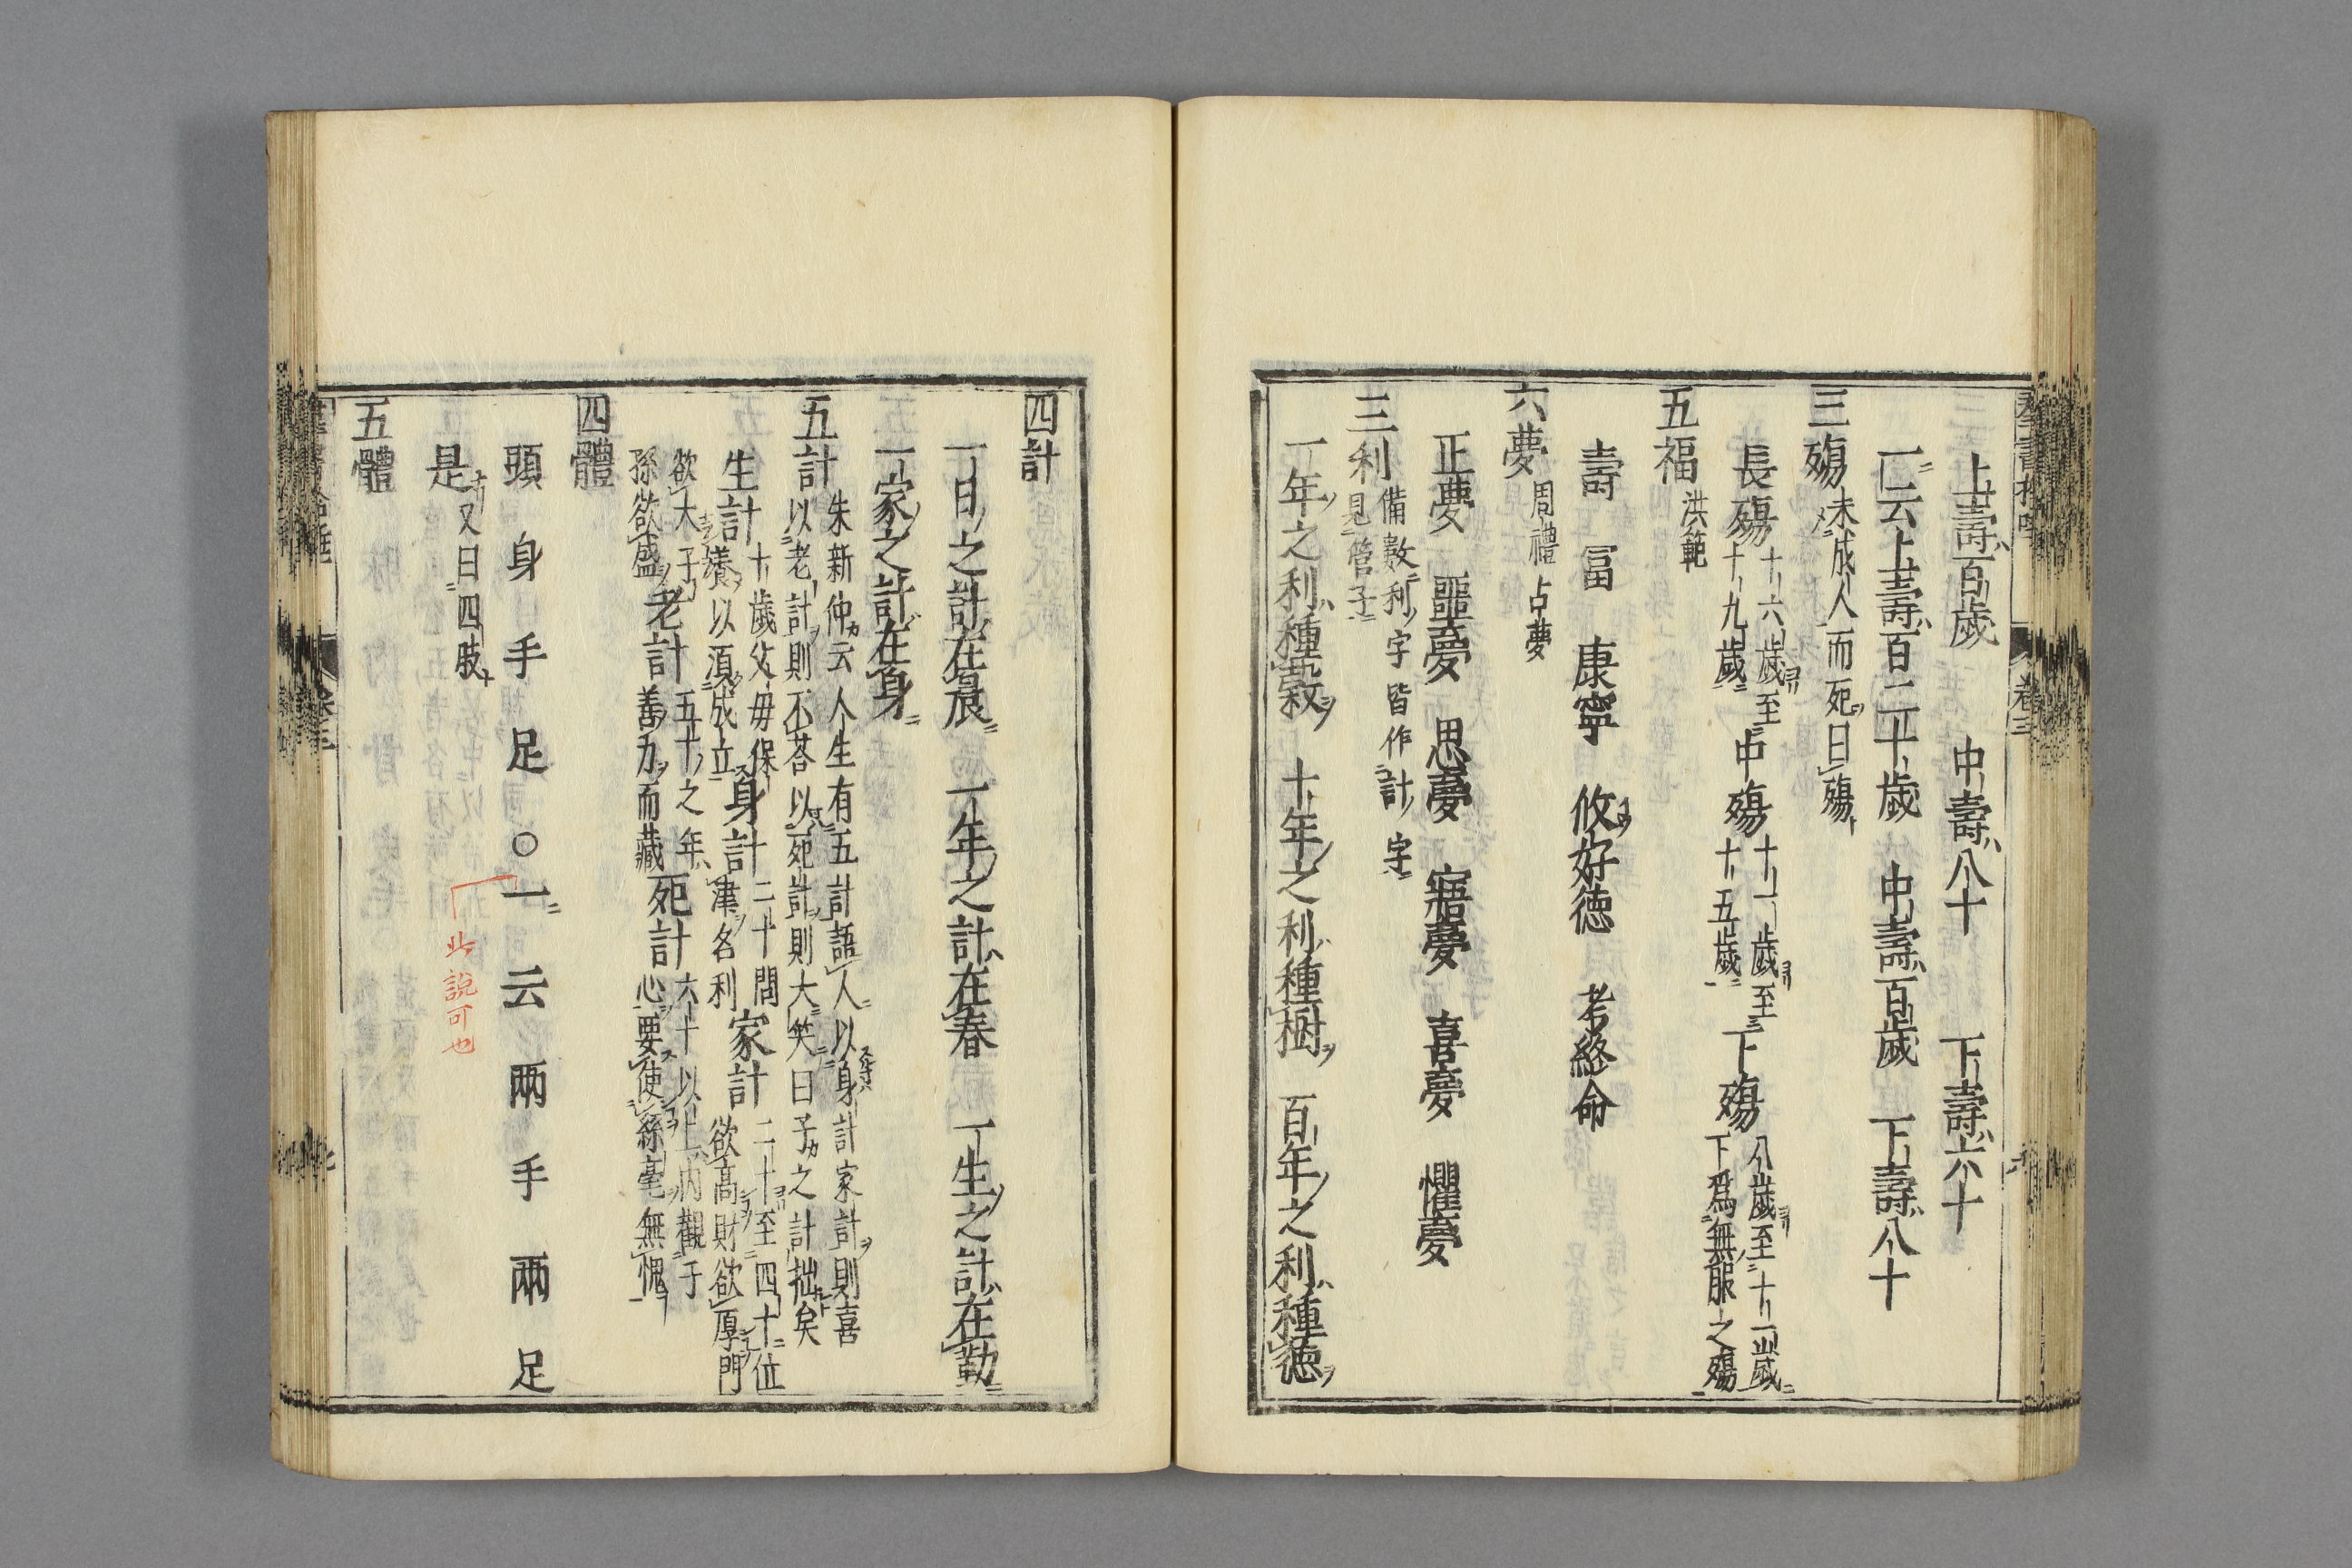 上壽百歲　中壽八十　下壽六十
一云上壽百二十歲　中壽百歲　下壽八十
三殤　未成人而死曰殤
長殤　十六歲至十九歲　中殤　十一歲至十五歲　下殤　八歲至十一歲下爲無服之殤
五福　洪範
壽　冨　康寧　攸好德　考終命
六夢　周禮占夢
正夢　噩夢　思夢　寤夢　喜夢　懼夢
三利　備數利字皆作計字見管子
一年之利種穀　十年之利種樹　百年之利種德
四計
一日之計在晨　一年之計在春　一生之計在勤
一家之計在身
五計　朱新仲云人生有五計語人以身計家計則喜以老計則不荅以死計則大笑曰子之計拙矣
生計　十歲父毋保養以須成立　身計　二十間津名利　家計　二十至四十位欲高財欲厚門
欲大子孫欲盛　老計　五十之年善力而藏　死計　六十以上内觀于心要使絲毫無愧
四體
頭　身　手　足　○一云兩手兩足
是　又曰四肢
此說可也
五體